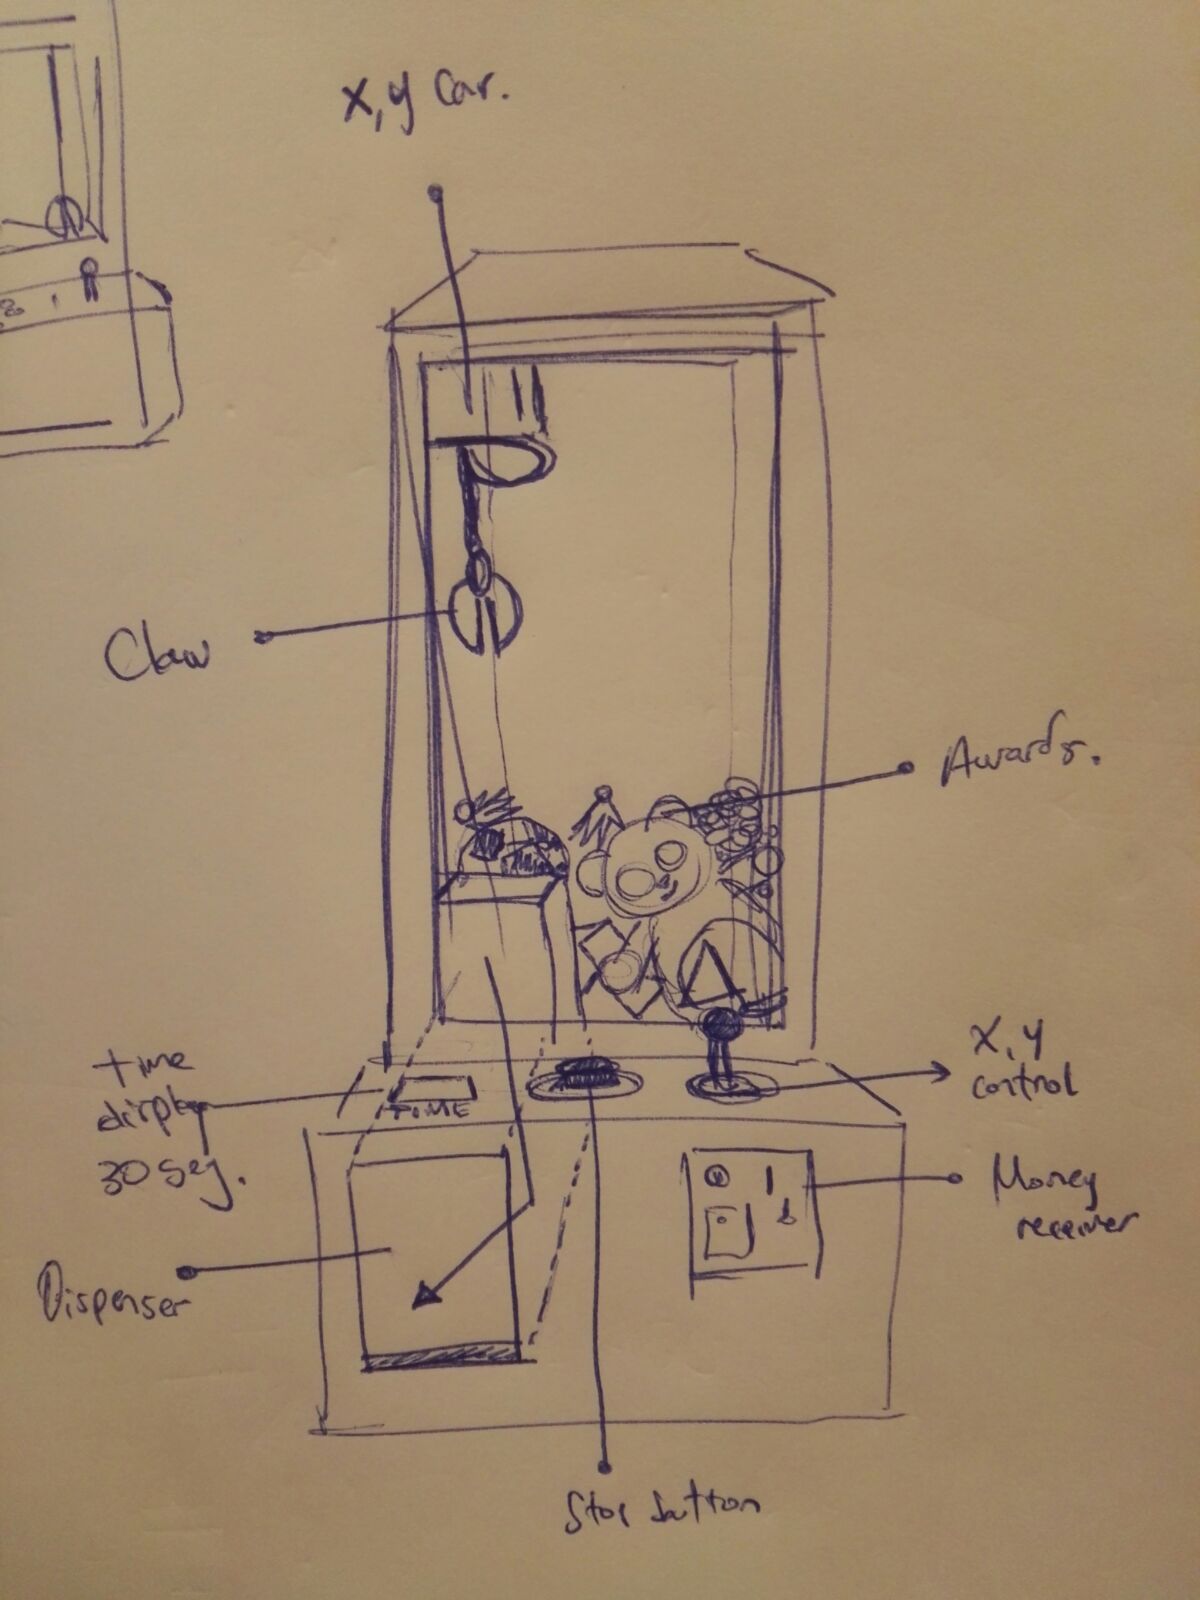 x, y car.
Claw
Awards.
time
display
30 seg.
TIME
x, y
control
Money
receiver
Dispenser
Stop button